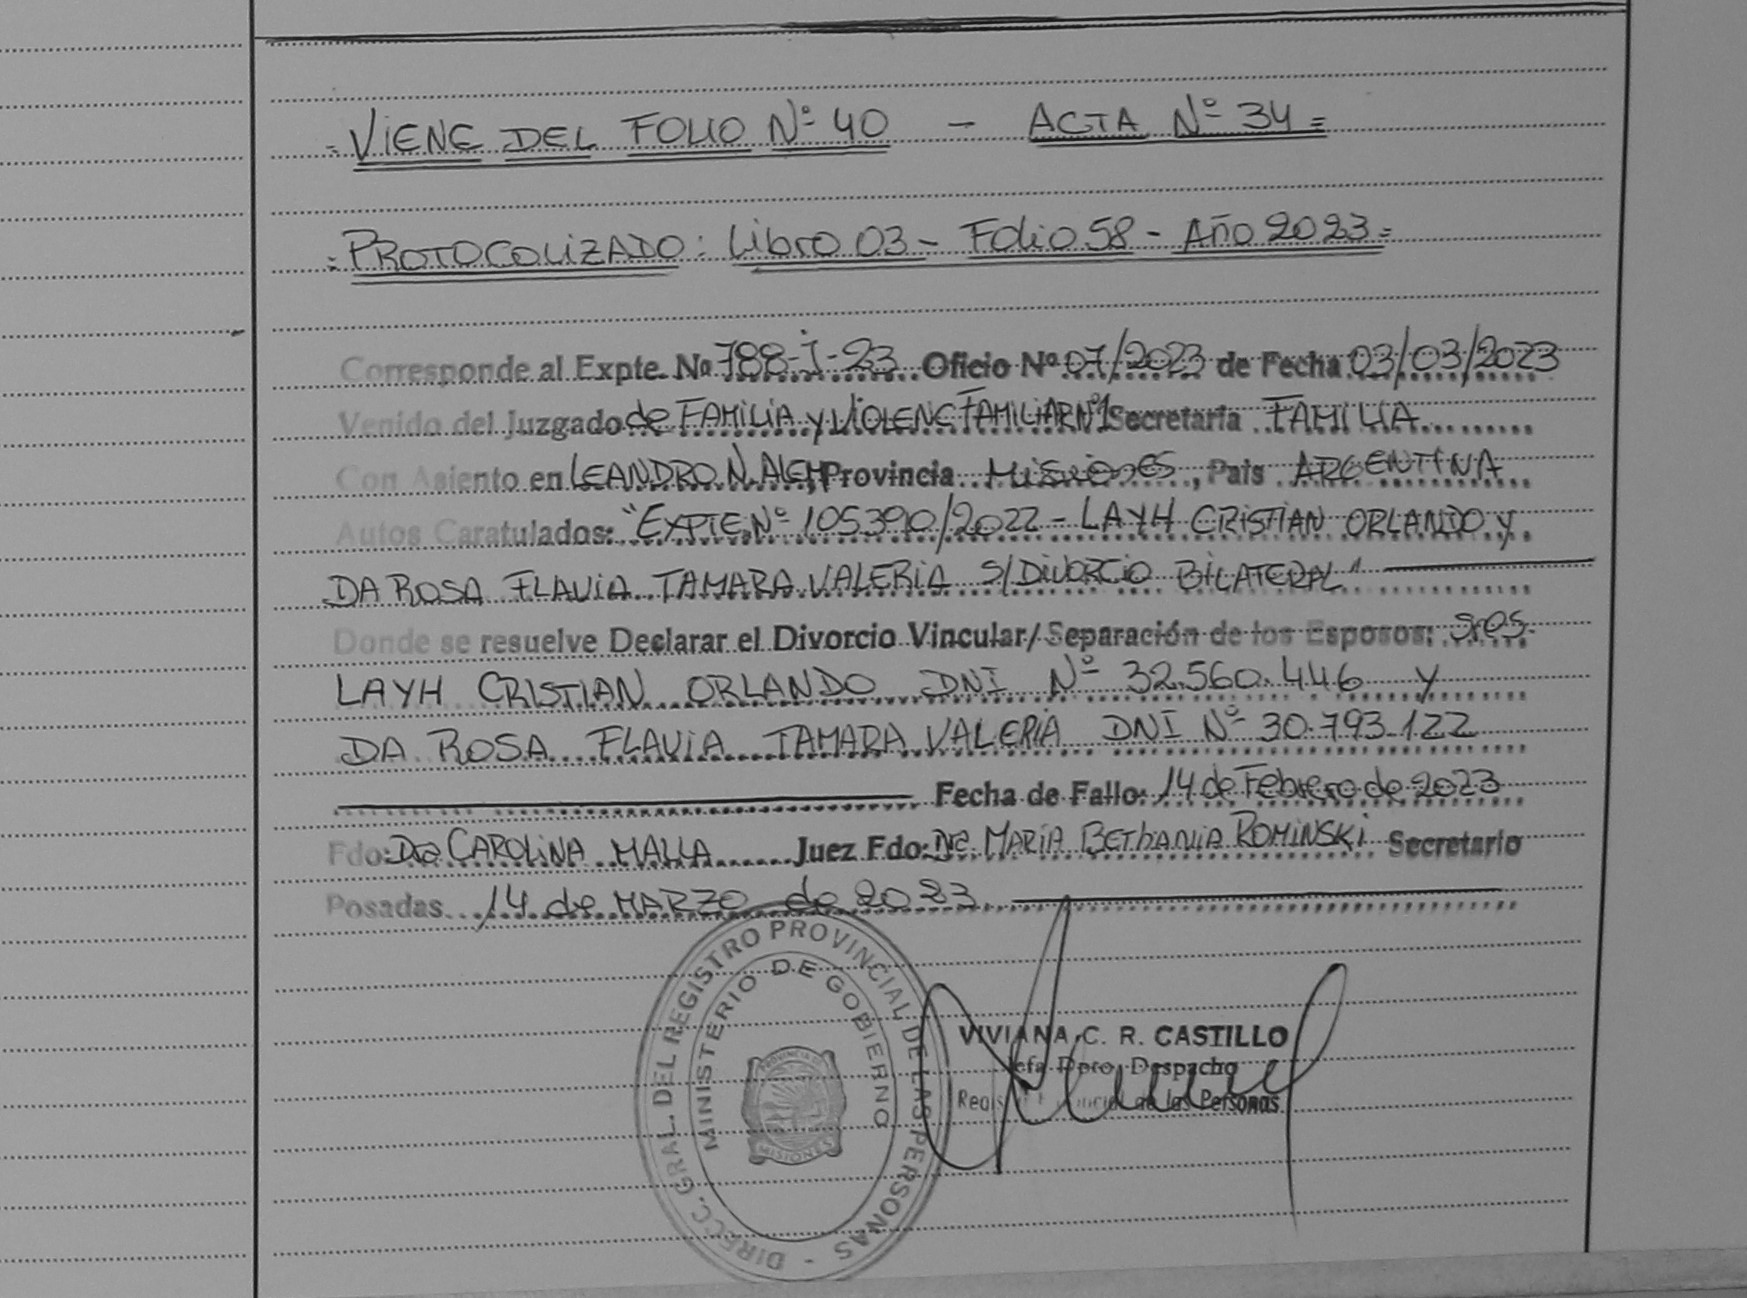 = VIENE DEL FOLIO Nº 40 - ACTA Nº 34 =
= PROTOCOLIZADO: Libro 03 - Folio 58 - Año 2023 =
Corresponde al Expte. Nº 788-J-23 Oficio Nº 07/2023 de Fecha 03/03/2023
Venido del Juzgado de FAMILIA y VIOLENC FAMILIAR Nº1 Secretaria FAMILIA
Con Asiento en LEANDRO N. ALEM, Provincia Misiones, Pais ARGENTINA
Autos Caratulados: "EXPTE Nº 105390/2022 - LAYH CRISTIAN ORLANDO y
DA ROSA FLAVIA TAMARA VALERIA S/ DIVORCIO BILATERAL"
Donde se resuelve Declarar el Divorcio Vincular/Separación de los Esposos: Sres.
LAYH CRISTIAN ORLANDO DNI Nº 32.560.446 y
DA ROSA FLAVIA TAMARA VALERIA DNI Nº 30.793.122
Fecha de Fallo: 14 de Febrero de 2023
Fdo: Dra CAROLINA MALLA Juez Fdo: Dra. MARIA BETHANIA ROMINSKI Secretario
Posadas 14 de MARZO de 2023
DIRECC. GRAL. DEL REGISTRO PROVINCIAL DE LAS PERSONAS -
MINISTERIO DE GOBIERNO
PROVINCIA DE
MISIONES
VIVIANA C. R. CASTILLO
Jefa Dpto. Despacho
de las Personas